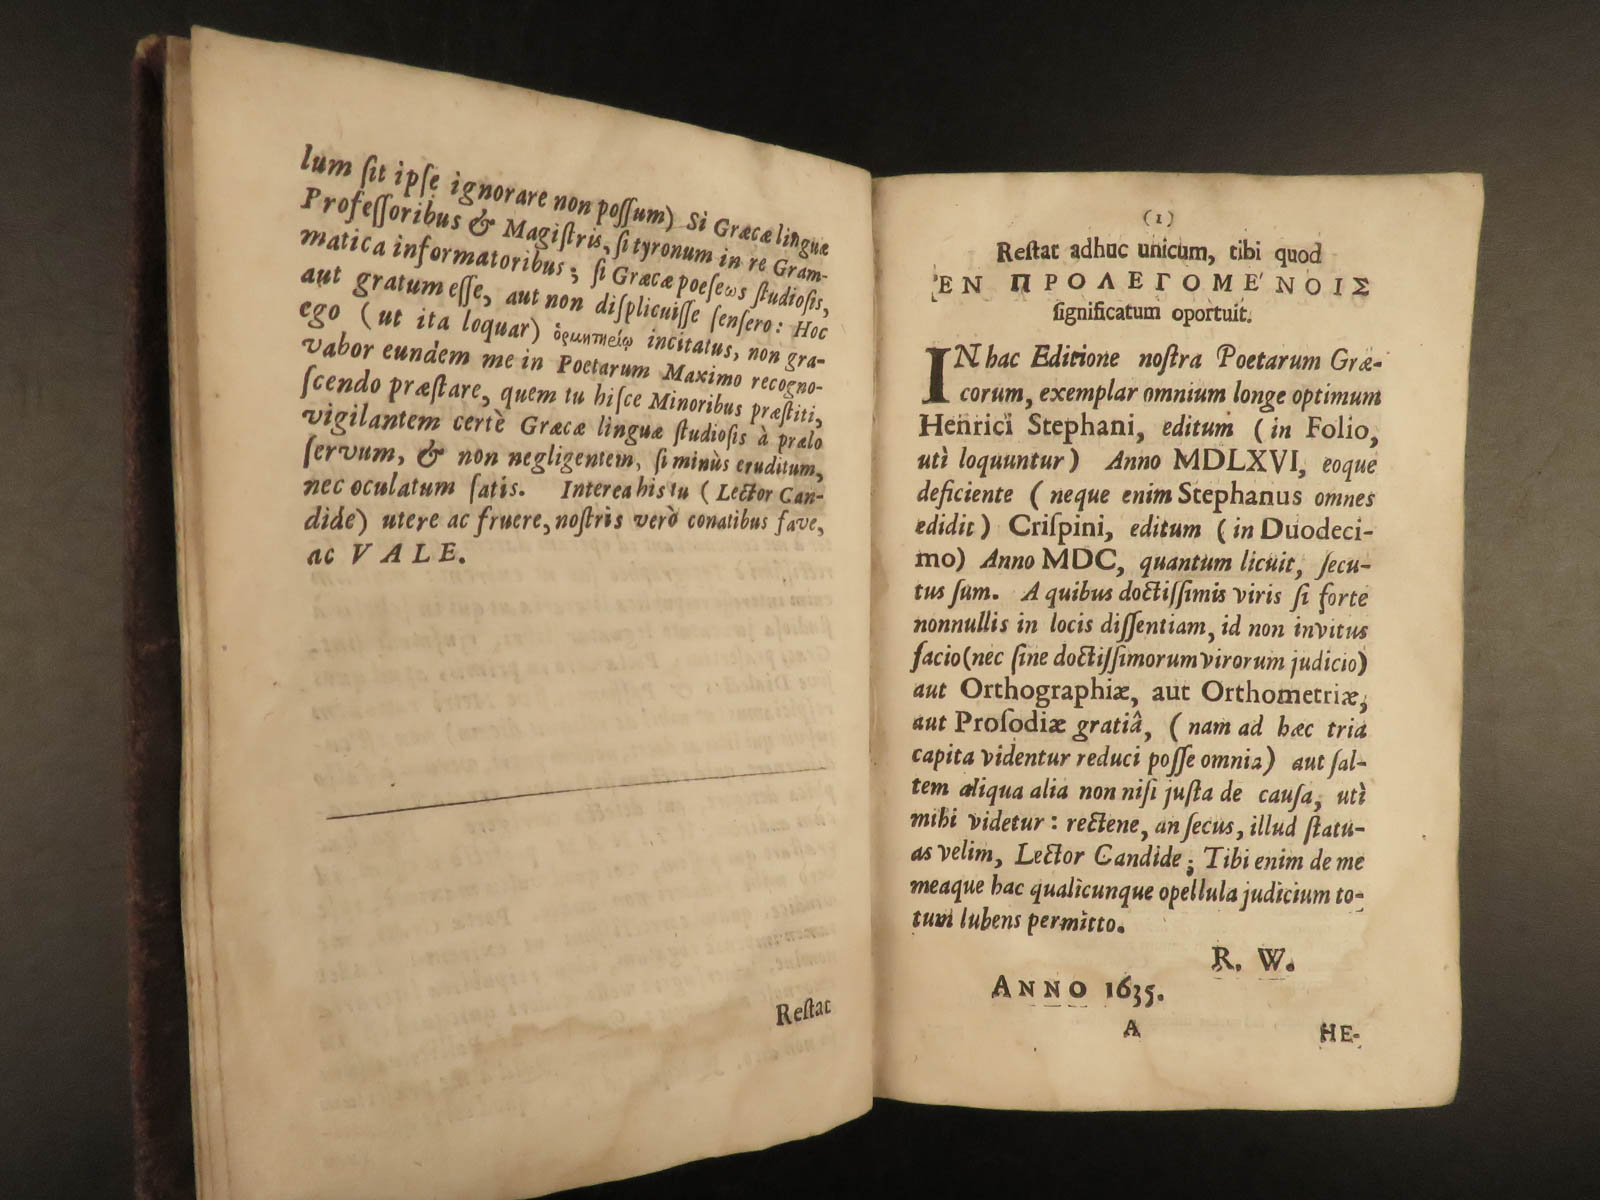 lum ſit ipſe ignorare non poſſum) Si Græcæ linguæ
Profeſſoribus & Magiſtris, ſi tyronum in re Gram-
matica informatoribus; ſi Græcæ poeſεως ſtudioſis,
aut gratum eſſe, aut non diſplicuiſſe ſenſero: Hoc
ego (ut ita loquar) ὁρμητηείῳ incitatus, non gra-
vabor eundem me in Poetarum Maximo recogno-
ſcendo præſtare, quem tu hiſce Minoribus præſtiti,
vigilantem certè Græcæ linguæ ſtudioſis à prælo
ſervum, & non negligentem, ſi minùs eruditum,
nec oculatum ſatis. Interea his tu (Lector Can-
dide) utere ac fruere, noſtris verò conatibus fave,
ac VALE.
Reſtat
(1)
Reſtat adhuc unicum, tibi quod
ἘΝ ΠΡΟΛΕΓΟΜΕ΄ΝΟΙΣ
ſignificatum oportuit.
IN hac Editione noſtra Poetarum Græ-
corum, exemplar omnium longe optimum
Henrici Stephani, editum (in Folio,
utì loquuntur) Anno MDLXVI, eoque
deficiente (neque enim Stephanus omnes
edidit) Criſpini, editum (in Duodeci-
mo) Anno MDC, quantum licuit, ſecu-
tus ſum. A quibus doctiſſimis viris ſi forte
nonnullis in locis diſſentiam, id non invitus
facio (nec ſine doctiſſimorum virorum judicio)
aut Orthographiæ, aut Orthometriæ,
aut Proſodiæ gratiâ, (nam ad hæc tria
capita videntur reduci poſſe omnia) aut ſal-
tem aliqua alia non niſi juſta de cauſa, utì
mihi videtur: rectene, an ſecus, illud ſtatu-
as velim, Lector Candide; Tibi enim de me
meaque hac qualicunque opellula judicium to-
tum lubens permitto.
R. W.
ANNO 1635.
A
HE-